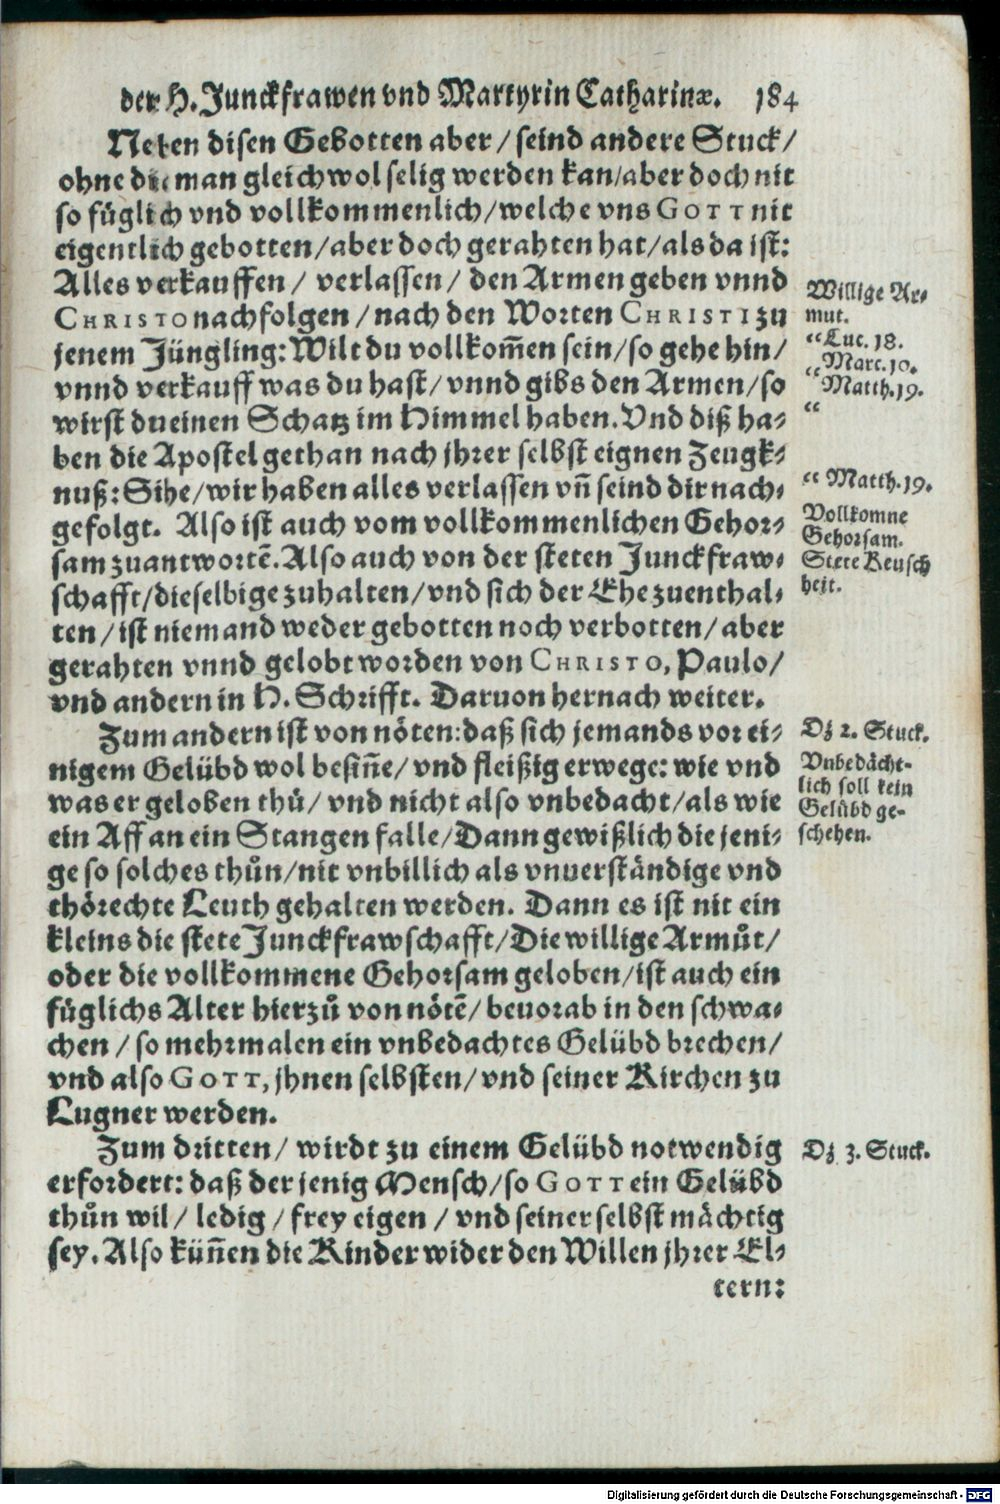 der H. Junckfrawen vnd Martyrin Catharinæ. 184
Neben disen Gebotten aber / seind andere Stuck /
ohne die man gleichwol selig werden kan / aber doch nit
so füglich vnd vollkommenlich / welche vns GOTT nit
eigentlich gebotten / aber doch gerahten hat / als da ist:
Alles verkauffen / verlassen / den Armen geben vnnd
CHRISTO nachfolgen / nach den Worten CHRISTI zu
jenem Jüngling: Wilt du vollkom̃en sein / so gehe hin /
vnnd verkauff was du hast / vnnd gibs den Armen / so
wirst du einen Schatz im Himmel haben. Vnd diß ha-
ben die Apostel gethan nach jhrer selbst eignen Zeugk-
nuß: Sihe / wir haben alles verlassen vñ seind dir nach-
gefolgt. Also ist auch vom vollkommenlichen Gehor-
sam zuantwortẽ. Also auch von der steten Junckfraw-
schafft / dieselbige zuhalten / vnd sich der Ehe zuenthal-
ten / ist niemand weder gebotten noch verbotten / aber
gerahten vnnd gelobt worden von CHRISTO, Paulo /
vnd andern in H. Schrifft. Daruon hernach weiter.
Willige Ar-
mut.
“Luc. 18.
“Marc. 10.
Matth. 19.
“
“ Matth. 19.
Vollkomne
Gehorsam.
Stete Keusch
heit.
Zum andern ist von nöten: daß sich jemands vor ei-
nigem Gelübd wol besiñe / vnd fleißig erwege: wie vnd
was er geloben thů / vnd nicht also vnbedacht / als wie
ein Aff an ein Stangen falle / Dann gewißlich die jeni-
ge so solches thůn / nit vnbillich als vnuerständige vnd
thörechte Leuth gehalten werden. Dann es ist nit ein
kleins die stete Junckfrawschafft / Die willige Armůt /
oder die vollkommene Gehorsam geloben / ist auch ein
füglichs Alter hierzů von nötẽ / beuorab in den schwa-
chen / so mehrmalen ein vnbedachtes Gelübd brechen /
vnd also GOTT, jhnen selbsten / vnd seiner Kirchen zu
Lugner werden.
Dz 2. Stuck.
Vnbedächt-
lich soll kein
Gelübd ge-
schehen.
Zum dritten / wirdt zu einem Gelübd notwendig
erfordert: daß der jenig Mensch / so GOTT ein Gelübd
thůn wil / ledig / frey eigen / vnd seiner selbst mächtig
sey. Also küñen die Kinder wider den Willen jhrer El-
tern:
Dz 3. Stuck.
Digitalisierung gefördert durch die Deutsche Forschungsgemeinschaft - DFG